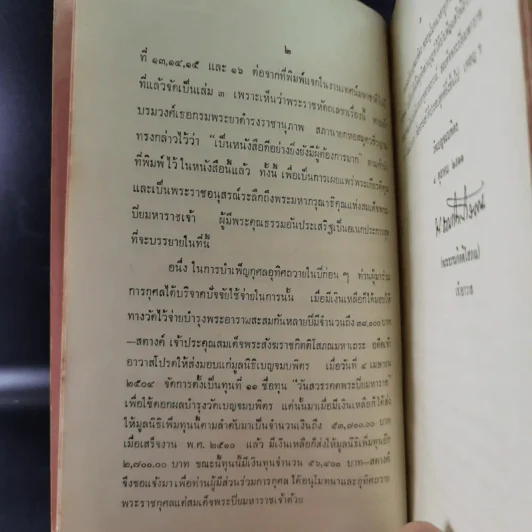 ๒
ที่ ๑๓,๑๔,๑๕ และ ๑๖ ต่อจากที่พิมพ์แจกในงาน
ที่แล้วจัดเป็นเล่ม ๓ เพราะเห็นว่าพระราชหัตถเลขาเรื่องนี้
บรมวงศ์เธอกรมพระยาดำรงราชานุภาพ สภานายกหอสมุดวชิรญาณ
ทรงกล่าวไว้ว่า "เป็นหนังสือดีอย่างยิ่งยังมีผู้ต้องการมาก"
ที่พิมพ์ไว้ในหนังสือนี้แล้ว ทั้งนี้ เพื่อเป็นการเผยแพร่พระเกียรติคุณ
และเป็นพระราชอนุสรณ์ระลึกถึงพระมหากรุณาธิคุณแห่งสมเด็จพระ
ปิยมหาราชเจ้า ผู้มีพระคุณธรรมอันประเสริฐเป็นอเนกประการ
ที่จะบรรยายในที่นี้
อนึ่ง ในการบำเพ็ญกุศลอุทิศถวายในปีก่อน ๆ ท่านผู้มาร่วม
การกุศลได้บริจาคปัจจัยใช้จ่ายในการนั้น เมื่อมีเงินเหลือก็ได้มอบให้
ทางวัดไว้จ่ายบำรุงพระอารามสะสมกันหลายปีมีจำนวนถึง ๓๘,๐๐๐ บาท
—สตางค์ เจ้าประคุณสมเด็จพระสังฆราชกิตติโสภณมหาเถระ อดีตเจ้า
อาวาสโปรดให้ส่งมอบแก่มูลนิธิเบญจมบพิตร เมื่อวันที่ ๔ เมษายน
๒๕๐๔ จัดการตั้งเป็นทุนที่ ๑๑ ชื่อทุน "วันสวรรคตพระปิยมหาราช"
เพื่อใช้ดอกผลบำรุงวัดเบญจมบพิตร แต่นั้นมาเมื่อมีเงินเหลือก็ได้ส่ง
ให้มูลนิธิเพิ่มทุนนี้ตามลำดับมาเป็นจำนวนเงินถึง ๕๓,๗๐๐.๐๐ บาท
เมื่อเสร็จงาน พ.ศ. ๒๕๑๐ แล้ว มีเงินเหลือก็ส่งให้มูลนิธิเพิ่มทุนอีก
๒,๗๐๐.๐๐ บาท ขณะนี้ทุนนี้มีเงินทุนจำนวน ๕๖,๔๐๐ บาท—สตางค์
จึงขอแจ้งมา เพื่อท่านผู้มีส่วนร่วมการกุศล ได้อนุโมทนาและอุทิศถวาย
พระราชกุศลแด่สมเด็จพระปิยมหาราชเจ้าด้วย
วัดเบญจมบพิตร
เจ้าอาวาส